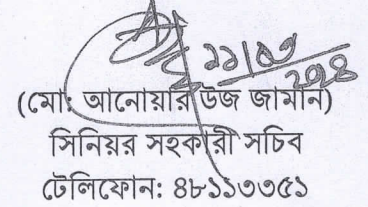 ১১/০৩
২০২৪
(মো: আনোয়ার উজ জামান)
সিনিয়র সহকারী সচিব
টেলিফোন: ৪৮১১৩৩৫১